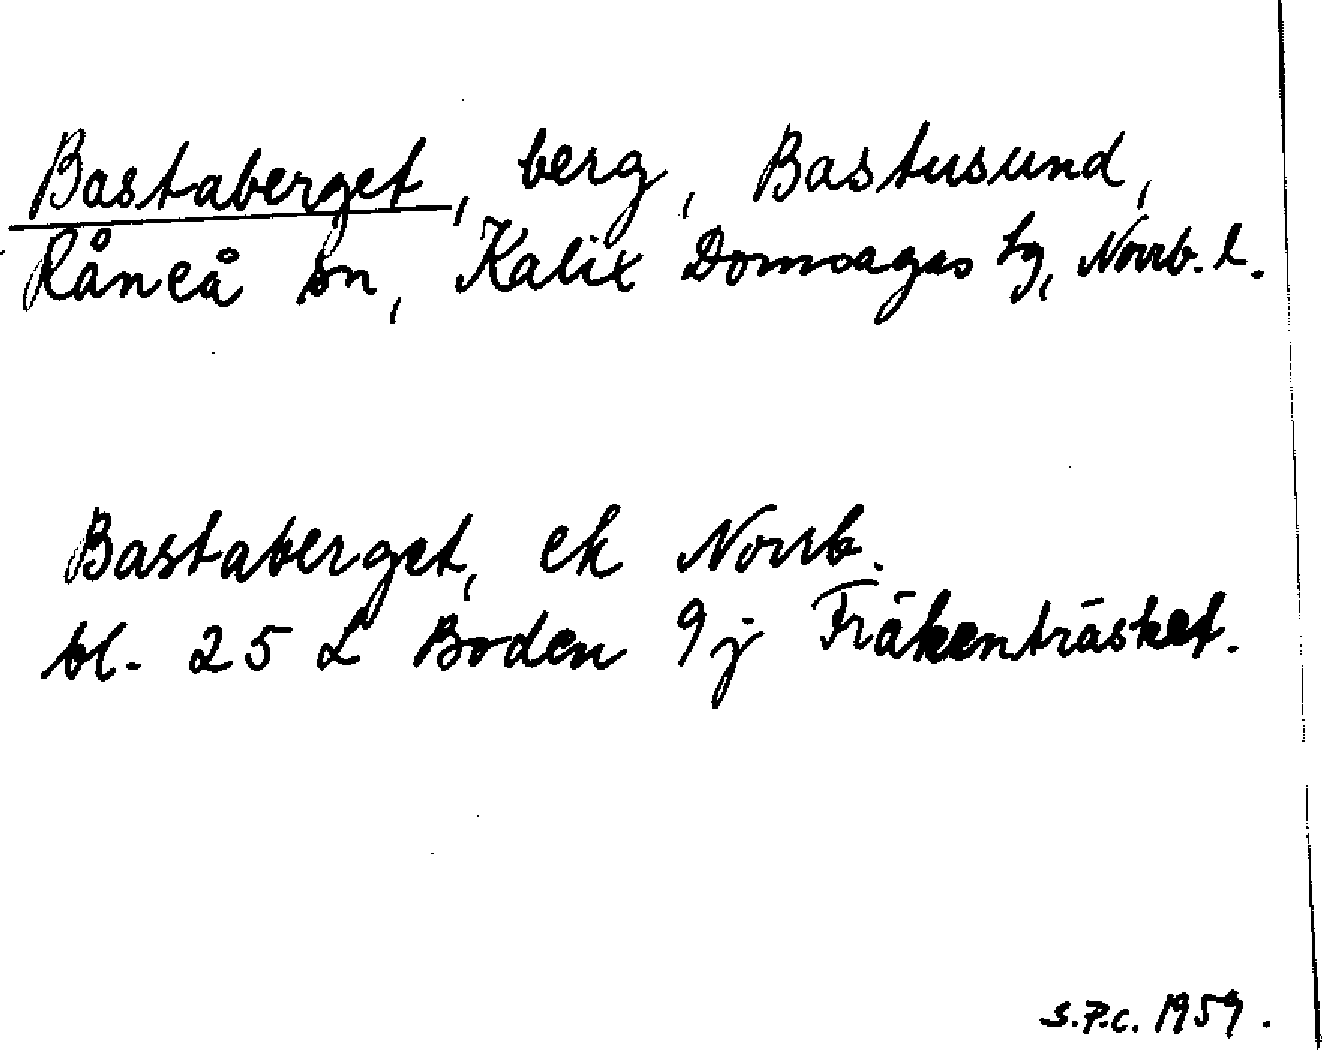 Bastaberget, berg, Bastusund,
Råneå sn, Kalix Domsagas tg, Norrb. l.
Bastaberget, ek Norrb.
bl. 25 L Boden 9j Fräkenträsket.
S.P.C. 1959.